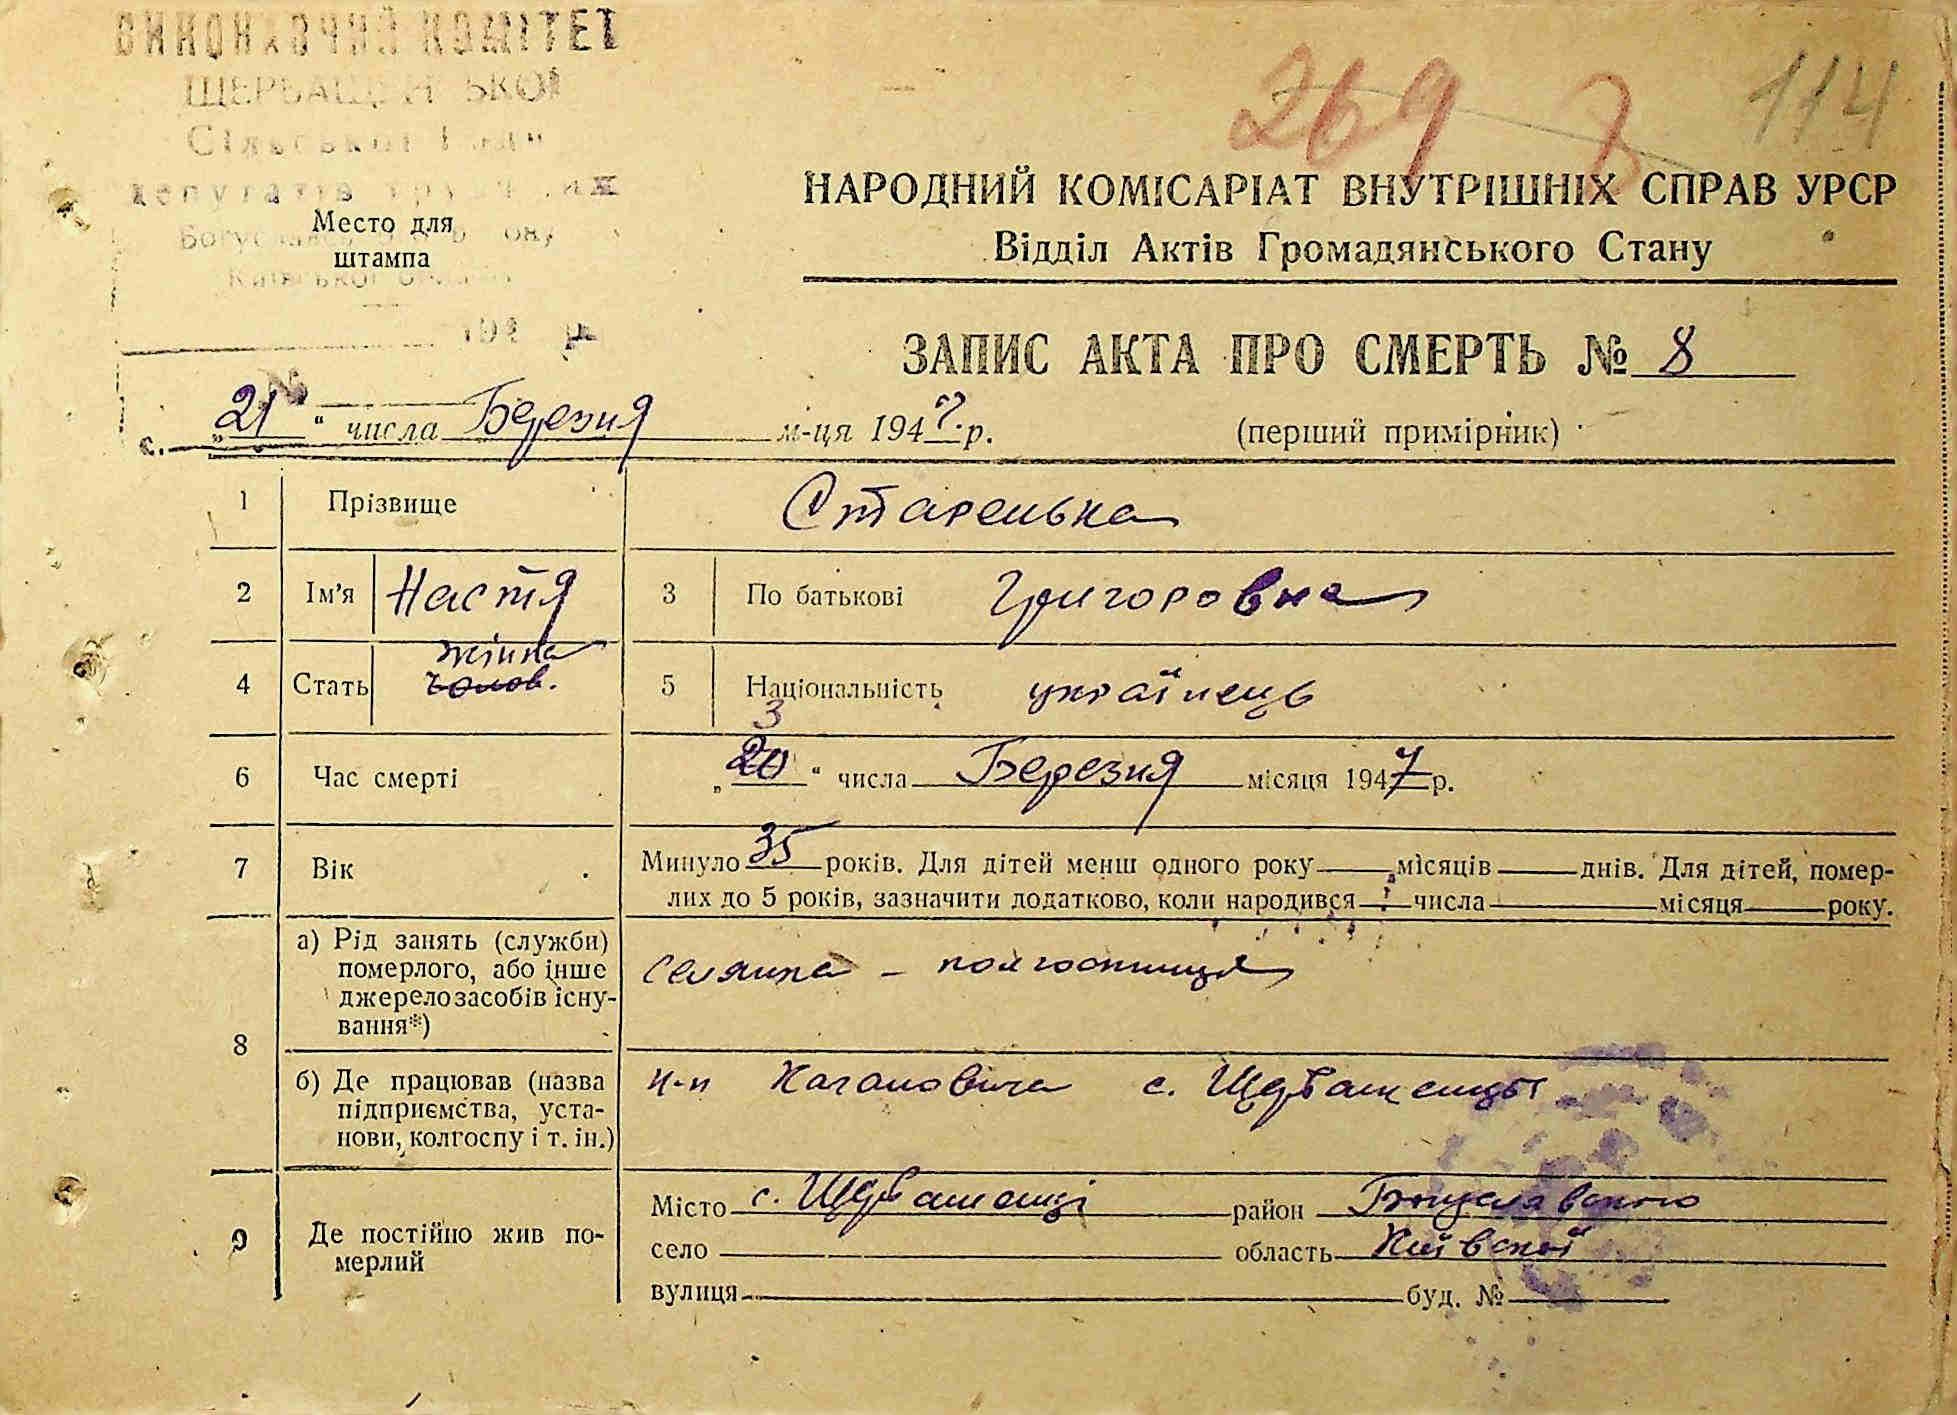 ВИКОНАВЧИЙ КОМІТЕТ
269 114
Сільської Ради
депутатів
НАРОДНИЙ КОМІСАРІАТ ВНУТРІШНІХ СПРАВ УРСР
Место для
штампа
Відділ Актів Громадянського Стану
Київської
ЗАПИС АКТА ПРО СМЕРТЬ № 8
с. „21“ числа Березня м-ця 1947 р. (перший примірник)
1 Прізвище Старенька
2 Ім'я Настя 3 По батькові Григоровна
жінка
4 Стать чолов. 5 Національність українець
3
6 Час смерті „20“ числа Березня місяця 1947 р.
7 Вік Минуло 35 років. Для дітей менш одного року місяців днів. Для дітей, помер-
лих до 5 років, зазначити додатково, коли народився числа місяця року.
8 а) Рід занять (служби)
померлого, або інше
джерело засобів існу-
вання*)
селянка - колгоспниця
б) Де працював (назва
підприємства, уста-
нови, колгоспу і т. ін.)
к-п Кагановича с. Щербашенцы
9 Де постійно жив по-
мерлий
Місто с. Щербашенці район Богуславського
село область Київської
вулиця буд. №